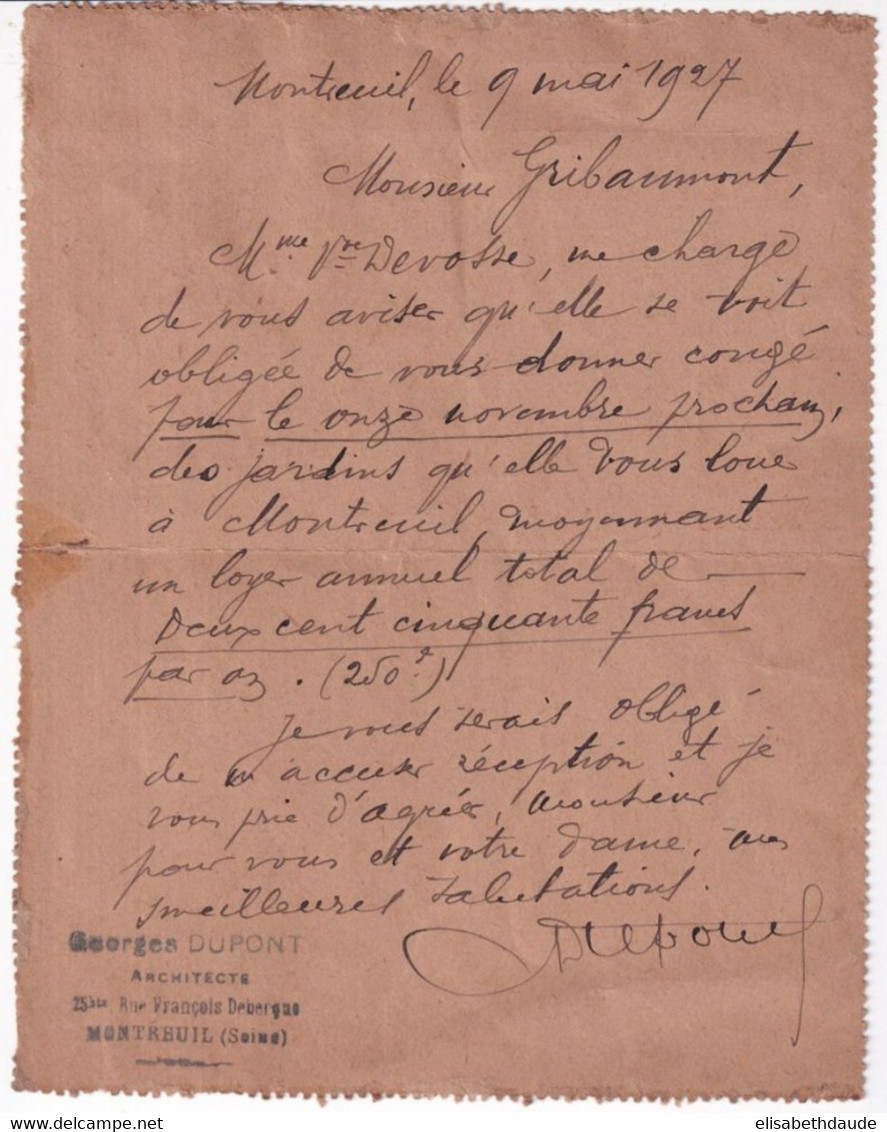 Montreuil, le 9 mai 1927
Monsieur Gribaumont,
Mme Vve Devosse, me charge
de vous aviser qu'elle se voit
obligée de vous donner congé
pour le onze novembre prochain,
des jardins qu'elle vous loue
à Montreuil, moyennant
un loyer annuel total de
Deux cent cinquante francs
par an. (250f)
Je vous serais obligé
de m'accuser réception et je
vous prie d'agréer, Monsieur
pour vous et votre dame, mes
meilleures salutations.
Dupont
Georges DUPONT
ARCHITECTE
25bis, Rue François Debergue
MONTREUIL (Seine)
elisabethdaude